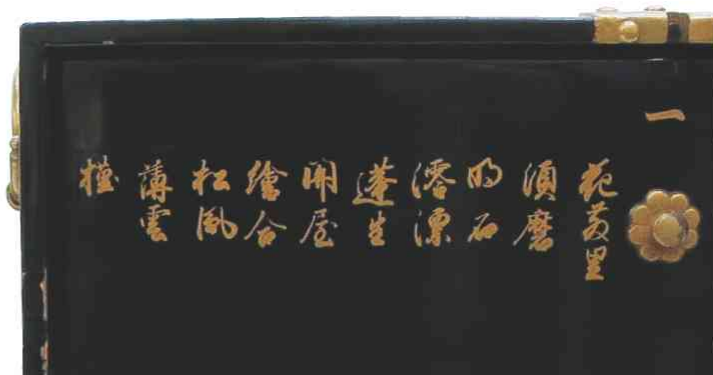 一
花散里
須磨
明石
澪標
蓬生
関屋
繪合
松風
薄雲
槿